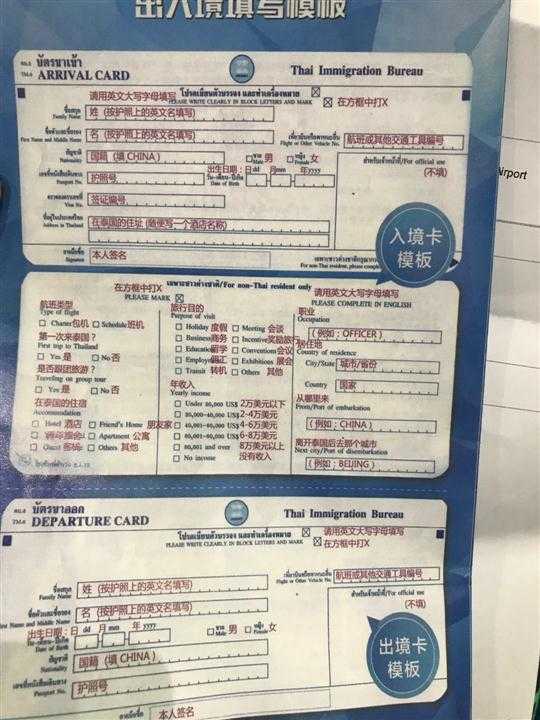 出入境填写模板
ตม.6
TM.6
บัตรขาเข้า
ARRIVAL CARD
Thai Immigration Bureau
请用英文大写字母填写
โปรดเขียนตัวบรรจง และทำเครื่องหมาย
PLEASE WRITE CLEARLY IN BLOCK LETTERS AND MARK
在方框中打X
ชื่อสกุล
Family Name
姓 (按护照上的英文名填写)
ชื่อตัวและชื่อรอง
First Name and Middle Name
名 (按护照上的英文名填写)
เที่ยวบินหรือพาหนะอื่น
Flight or Other Vehicle No.
航班或其他交通工具编号
สัญชาติ
Nationality
国籍 (填 CHINA)
ชาย 男
Male
หญิง 女
Female
สำหรับเจ้าหน้าที่/For official use
(不填)
เลขที่หนังสือเดินทาง
Passport No.
护照号
出生日期: 日 dd 月 mm 年 yyyy
วัน-เดือน-ปีเกิด
Date of Birth
ตรวจลงตราเลขที่
Visa No.
签证号
ที่อยู่ในประเทศไทย
Address in Thailand
在泰国的住址 (随便写一个酒店名称)
ลายมือชื่อ
Signature
本人签名
入境卡
模板
For non-Thai resident, please comp
在方框中打X
PLEASE MARK
เฉพาะชาวต่างชาติ/For non-Thai resident only
请用英文大写字母填写
PLEASE COMPLETE IN ENGLISH
航班类型
Type of flight
Charter 包机 Schedule 班机
第一次来泰国?
First trip to Thailand
Yes 是 No 否
是否跟团旅游?
Traveling on group tour
Yes 是 No 否
在泰国的住宿
Accommodation
Hotel 酒店 Friend's Home 朋友家
Apartment 公寓
Guest Others 其他
旅行目的
Purpose of visit
Holiday 度假 Meeting 会谈
Business 商务 Incentive 奖励旅
Education 留学 Convention 会议
Employment Exhibitions 展会
Transit 转机 Others 其他
年收入
Yearly income
Under 20,000 US$ 2万美元以下
20,000-40,000 US$ 2-4万美元
40,001-60,000 US$ 4-6万美元
60,001-80,000 US$ 6-8万美元
80,001 and over 8万美元以上
No income 没有收入
职业
Occupation
(例如: OFFICER)
居住地
Country of residence
City/State 城市/省份
Country 国家
从哪里来
From/Port of embarkation
(例如: CHINA)
离开泰国后去那个城市
Next city/Port of disembarkation
(例如: BEIJING)
ตม.6
TM.6
บัตรขาออก
DEPARTURE CARD
Thai Immigration Bureau
โปรดเขียนตัวบรรจง และทำเครื่องหมาย
PLEASE WRITE CLEARLY IN BLOCK LETTERS AND MARK
请用英文大写字母填写
在方框中打X
ชื่อสกุล
Family Name
姓 (按护照上的英文名填写)
เที่ยวบินหรือพาหนะอื่น
Flight or Other Vehicle No.
航班或其他交通工具编号
ชื่อตัวและชื่อรอง
First Name and Middle Name
名 (按护照上的英文名填写)
สำหรับเจ้าหน้าที่/For official use
(不填)
出生日期: 日 dd 月 mm 年 yyyy
วัน-เดือน-ปีเกิด
Date of Birth
ชาย 男
Male
หญิง 女
Female
สัญชาติ
Nationality
国籍 (填 CHINA)
เลขที่หนังสือเดินทาง
Passport No.
护照号
ลายมือชื่อ
本人签名
出境卡
模板
irport